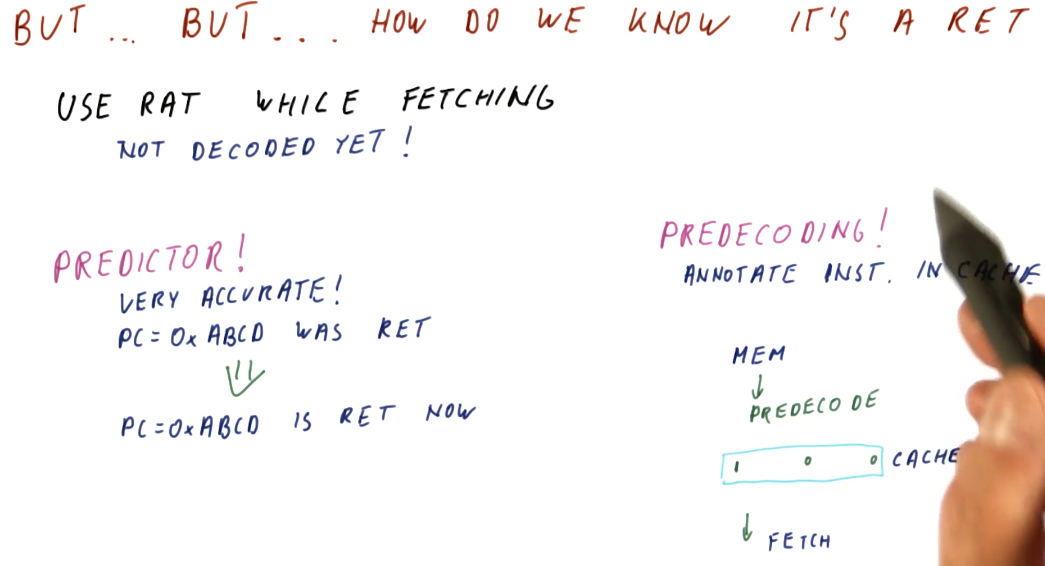 BUT ... BUT ... . HOW DO WE KNOW IT'S A RET
USE RAT WHILE FETCHING
NOT DECODED YET !
PREDICTOR !
VERY ACCURATE !
PC = 0x ABCD WAS RET
PC = 0x ABCD IS RET NOW
PREDECODING !
ANNOTATE INST. IN CACHE
MEM
PREDECODE
1 0 0 CACHE
FETCH